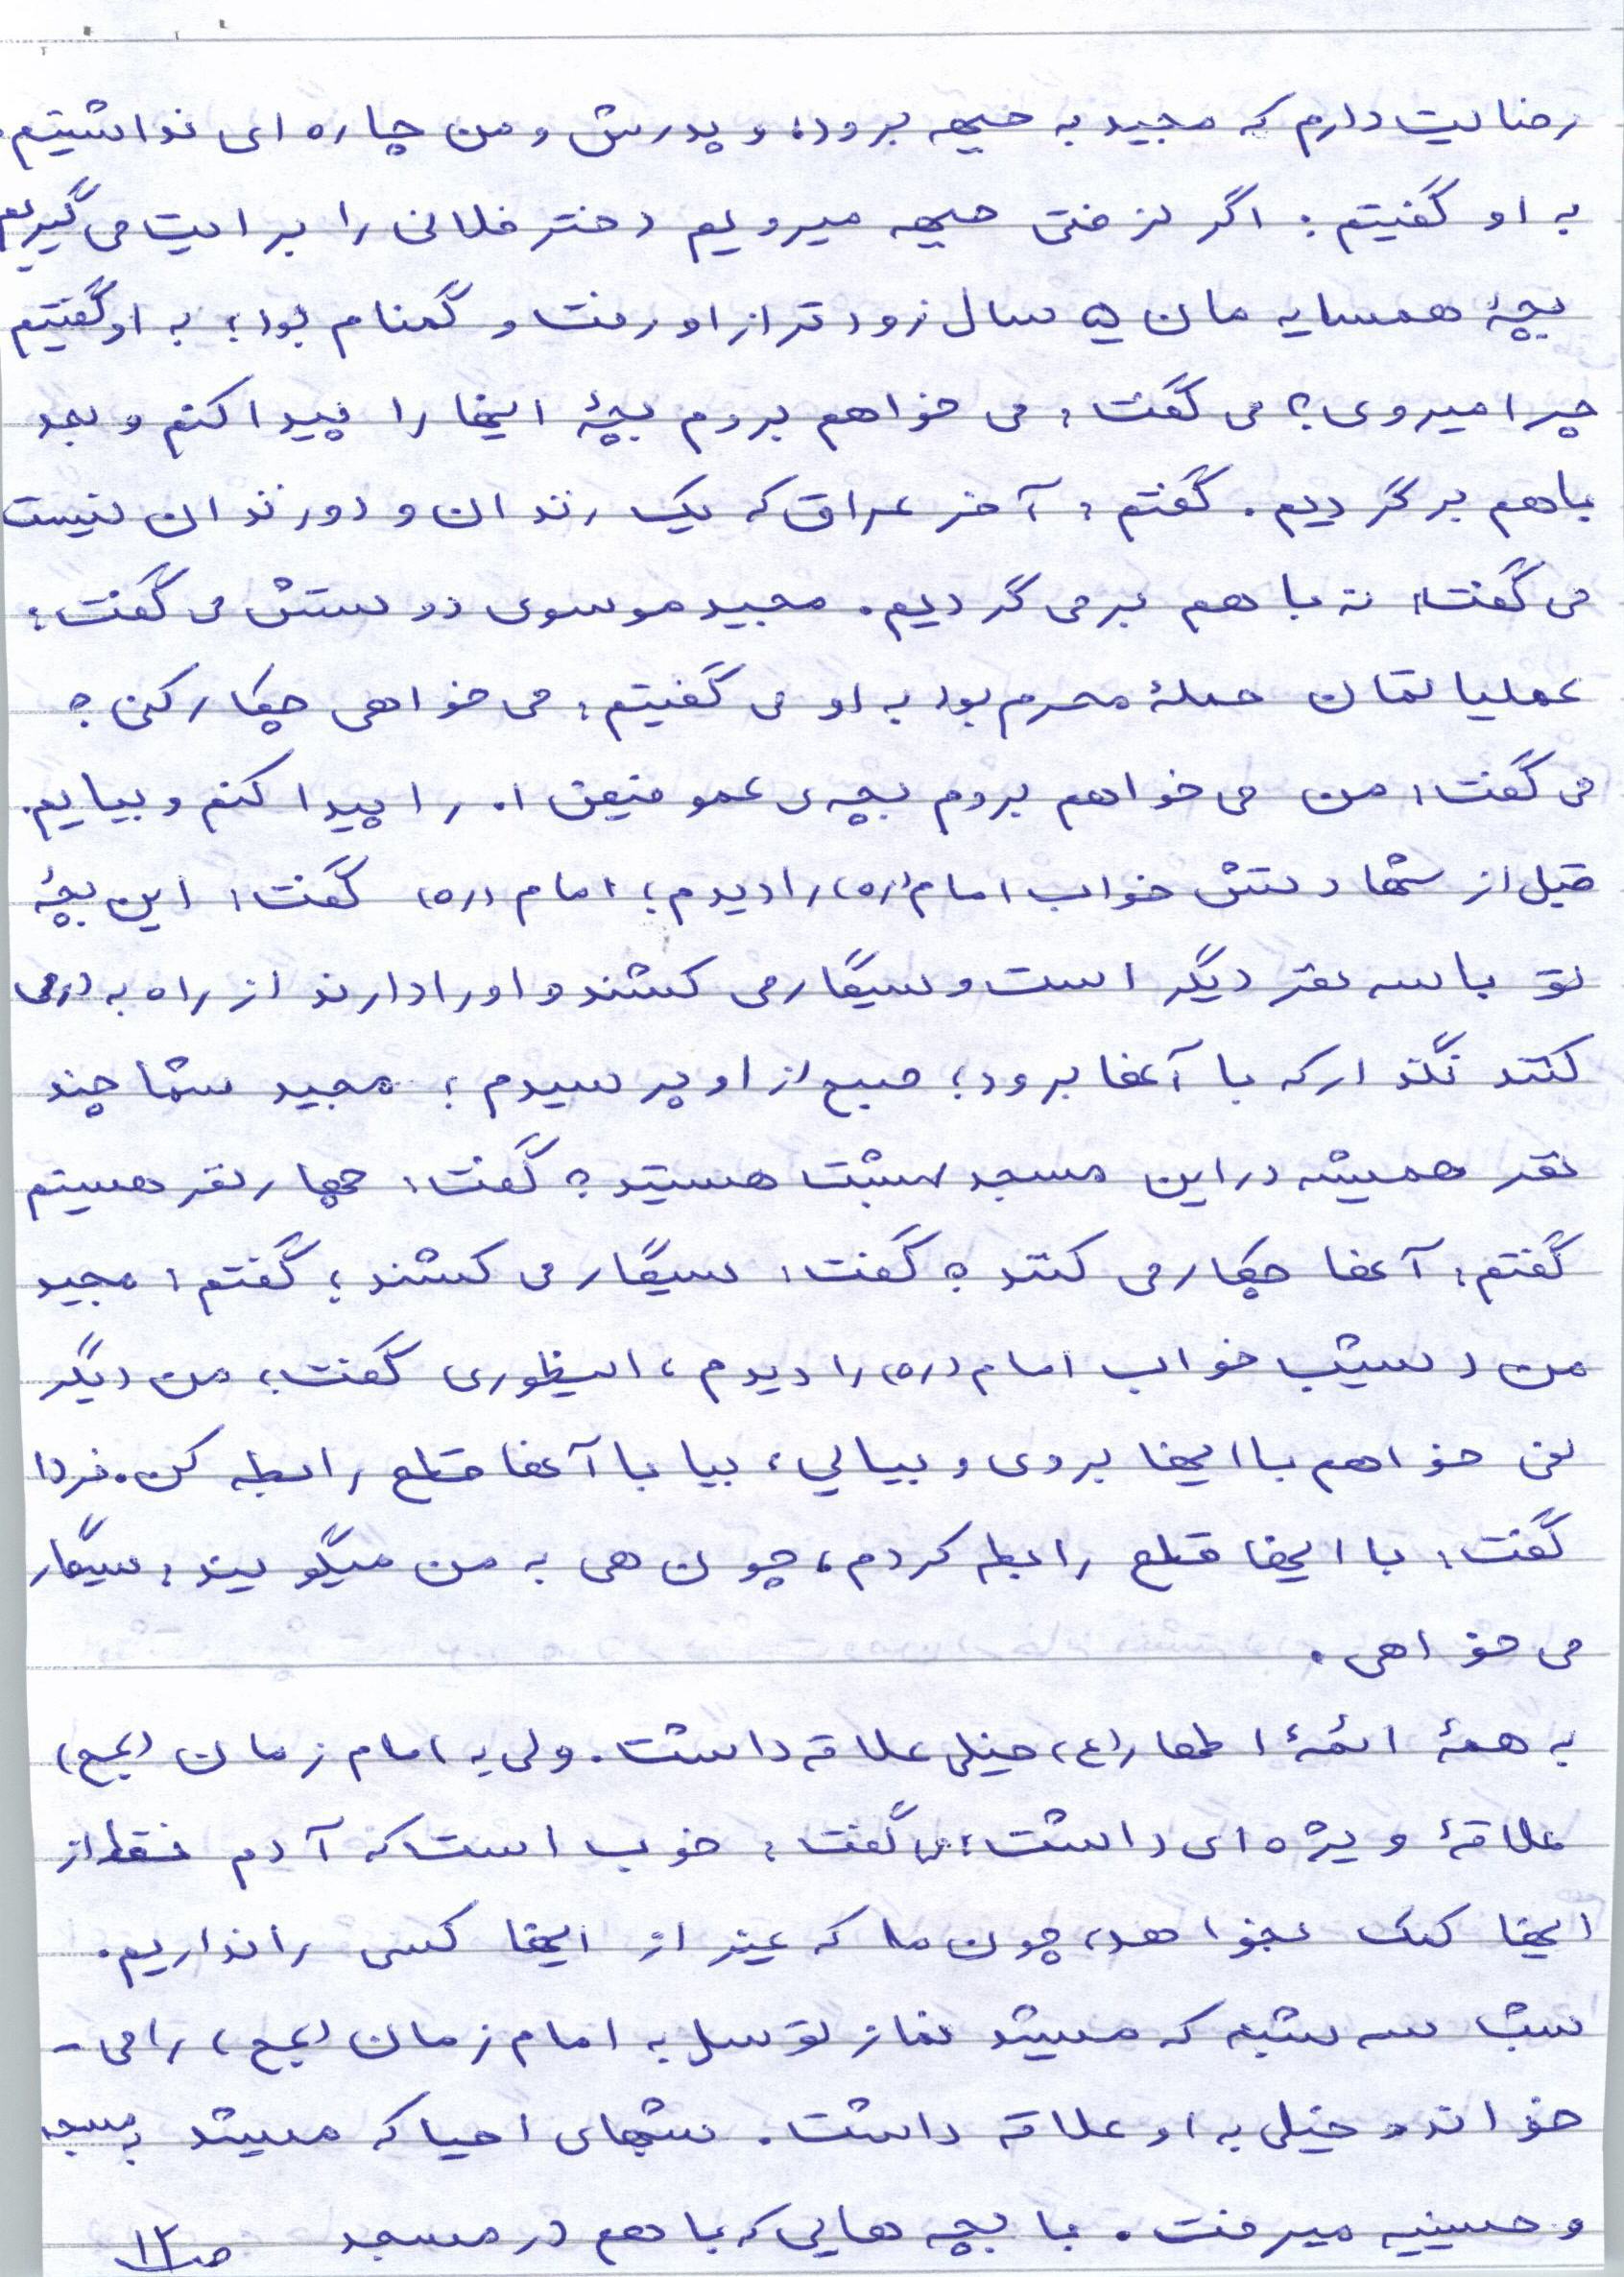 رضایت دارم که مجید به جبهه برود؛ و پدرش و من چاره ای نداشتیم.
به او گفتیم: اگر نرفتی جبهه میرویم دختر فلانی را برایت می گیریم
بچهٔ همسایه مان ۵ سال زودتر از او رفت و گمنام بود؛ به او گفتیم
چرا میروی؟ می گفت: می خواهم بروم بچهٔ اینها را پیدا کنم و بعد
باهم برگردیم. گفتم: آخر عراق که یک زندان و دو زندان نیست
می گفت: نه با هم برمی گردیم. مجید موسوی دوستش می گفت:
عملیاتمان حملهٔ محرم بود به او می گفتیم: می خواهی چکار کنی؟
می گفت: من می خواهم بروم بچه ی عمو را پیدا کنم و بیایم.
قبل از شهادتش خواب امام (ره) را دیدم؛ امام (ره) گفت: این بچهٔ
تو با سه نفر دیگر است و سیگار می کشند و او را دارند از راه به در می
کنند نگذار که با آنها برود؛ صبح از او پرسیدم: مجید شما چند
نفر همیشه در این مسجد هستید؟ گفت: چهار نفر هستیم
گفتم: آنها چکار می کنند؟ گفت: سیگار می کشند؛ گفتم: مجید
من دیشب خواب امام (ره) را دیدم، اینطوری گفت؛ من دیگر
نمی خواهم با اینها بروی و بیایی، بیا با آنها قطع رابطه کن. فردا
گفت: با اینها قطع رابطه کردم، چون هی به من میگویند: سیگار
می خواهی.
به همهٔ ائمهٔ اطهار (ع) خیلی علاقه داشت. ولی به امام زمان (عج)
علاقهٔ ویژه ای داشت، می گفت: خوب است که آدم فقط از
اینها کمک بخواهد، چون ما که غیر از اینها کسی را نداریم.
شب سه شنبه که میشد نماز توسل به امام زمان (عج) را می-
خواند و خیلی به او علاقه داشت. شبهای احیا که میشد به مسجد
و حسینیه میرفت. با بچه هایی که با هم در مسجد ص۱۲